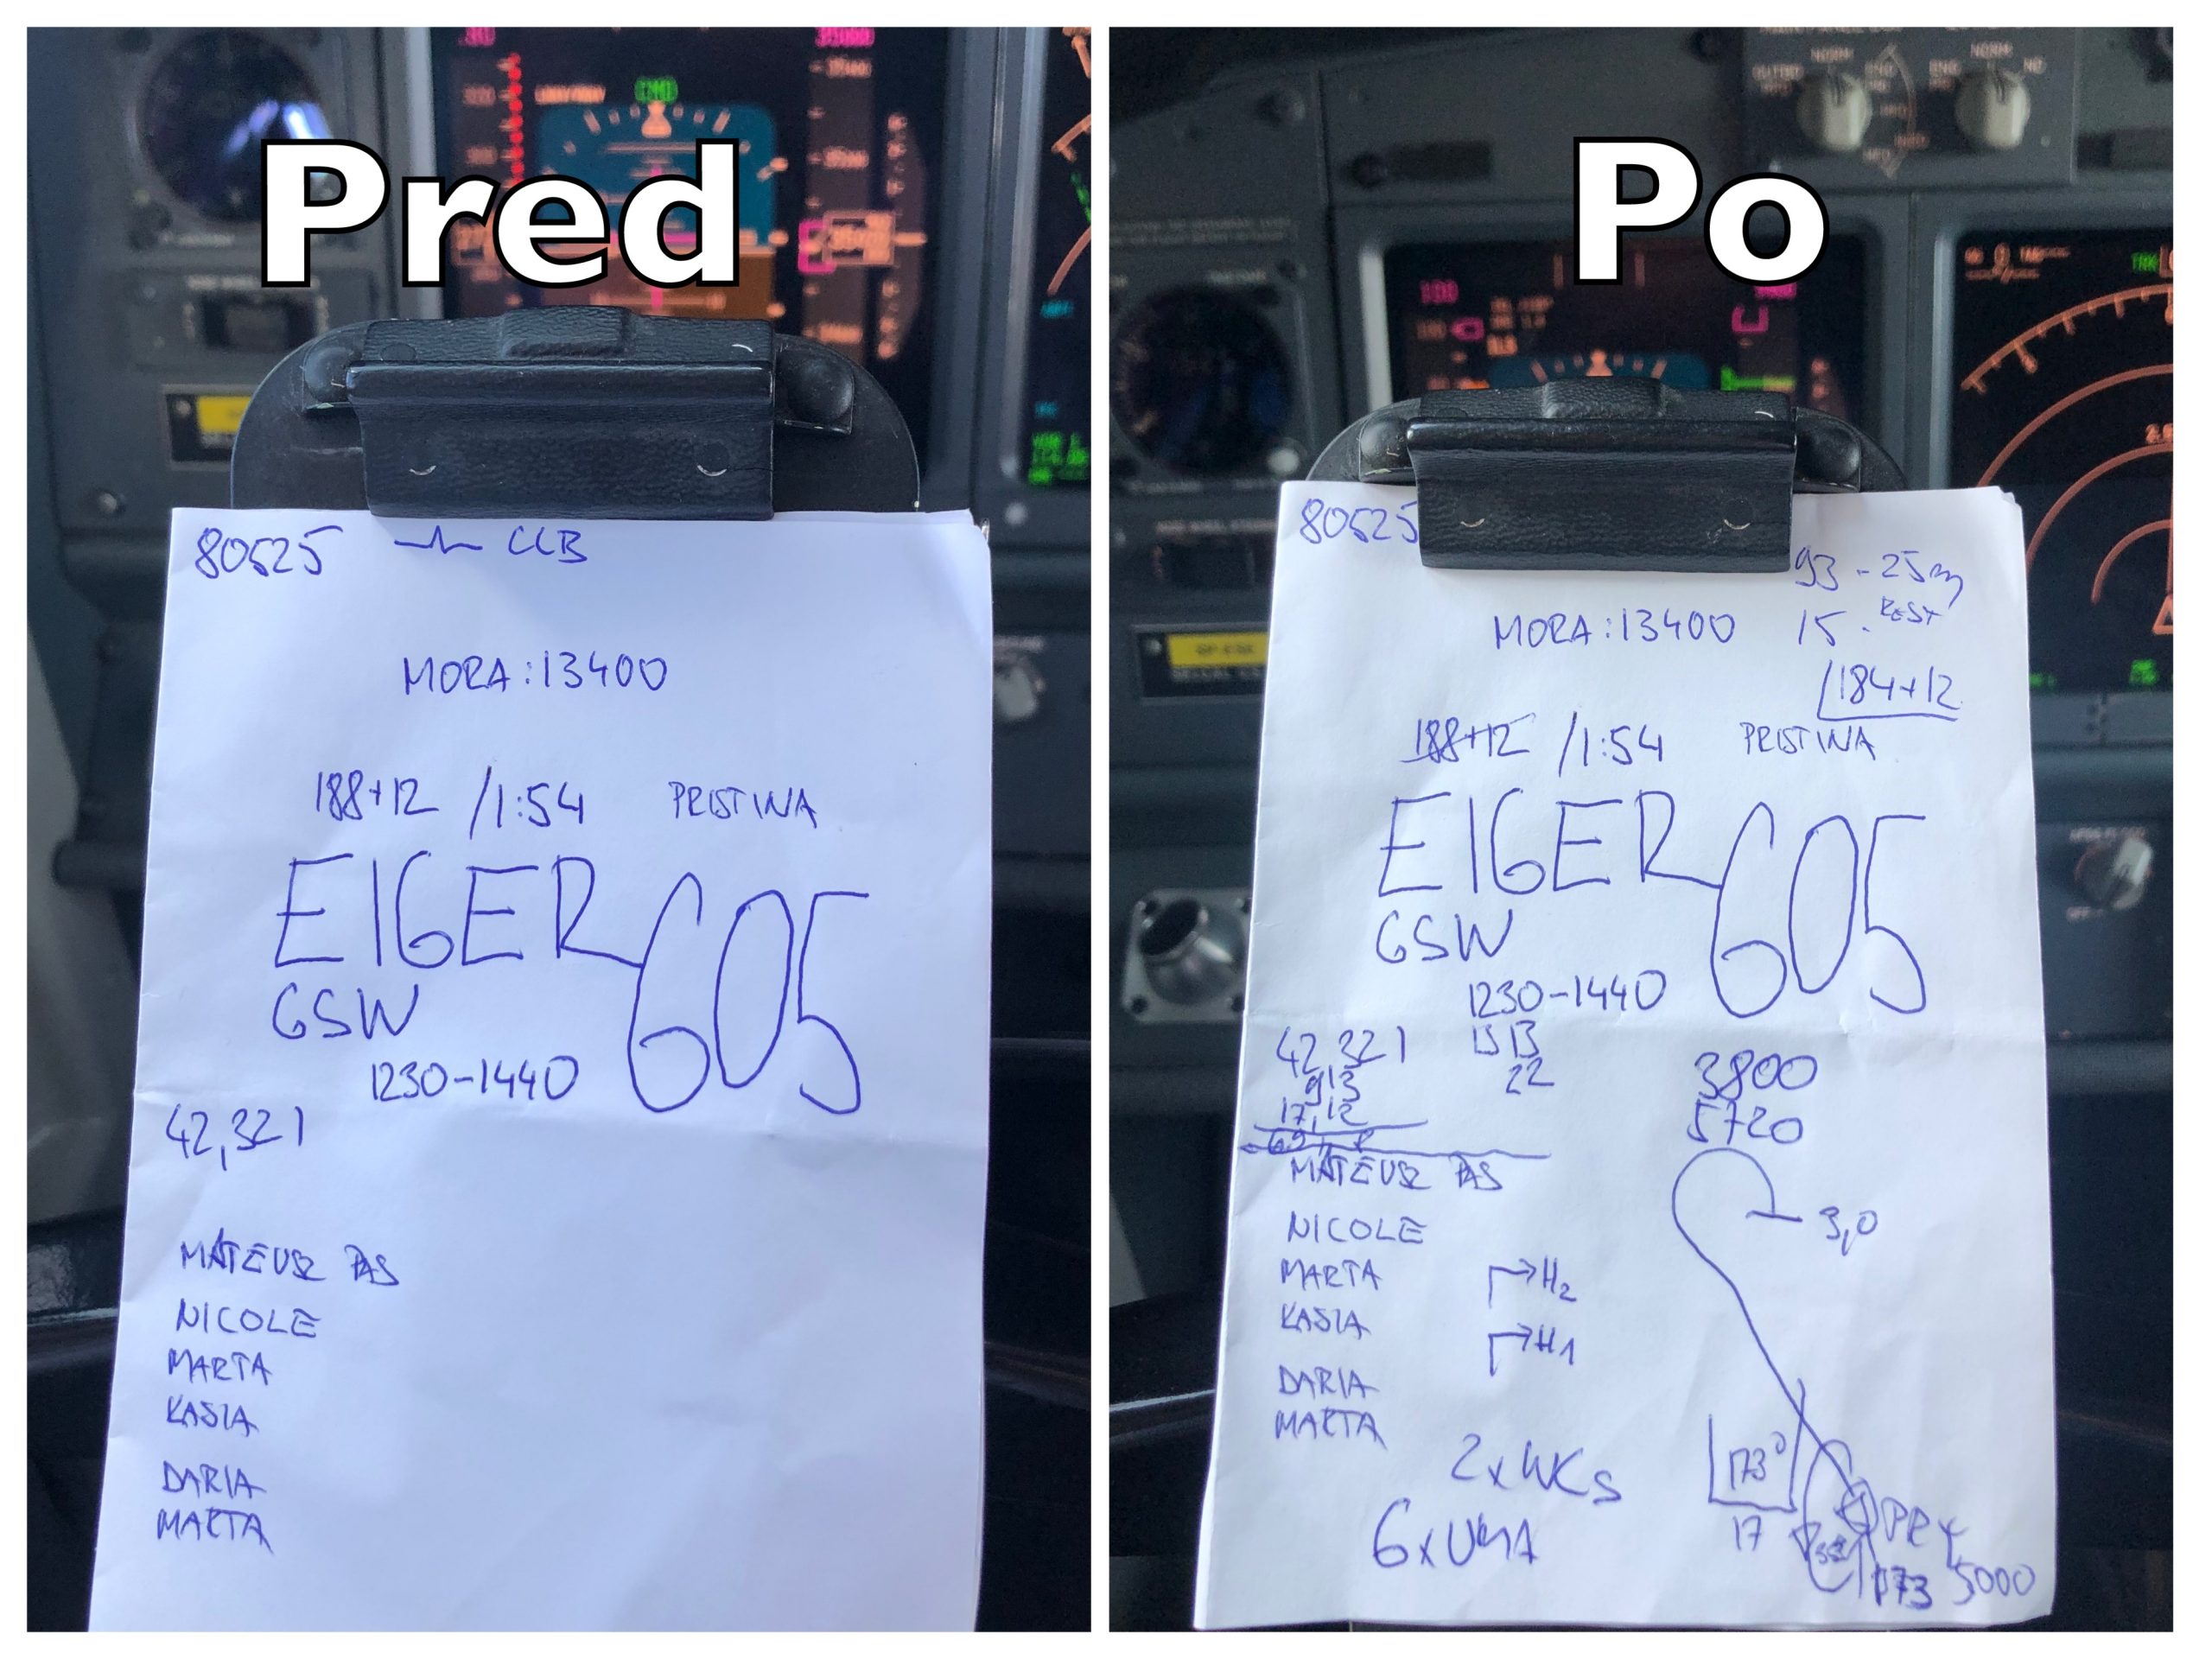 Pred
80525 CLB
MORA: 13400
188+12 /1:54 PRISTINA
EIGER 605
GSW
1230-1440
42,321
MATEUSZ PAS
NICOLE
MARTA
KASIA
DARIA
MARTA
CMD
Po
NORM
NORM
80525
93 - 25m
MORA: 13400 15. REST
184+12
188+12 /1:54 PRISTINA
EIGER 605
GSW
1230-1440
42,321 15 13
913 22
17,12
3800
5720
MATEUSZ PAS
NICOLE
3,0
MARTA H2
KASIA H1
DARIA
MARTA
2xWCS
173°
17
6xUMA
PRY
173 5000